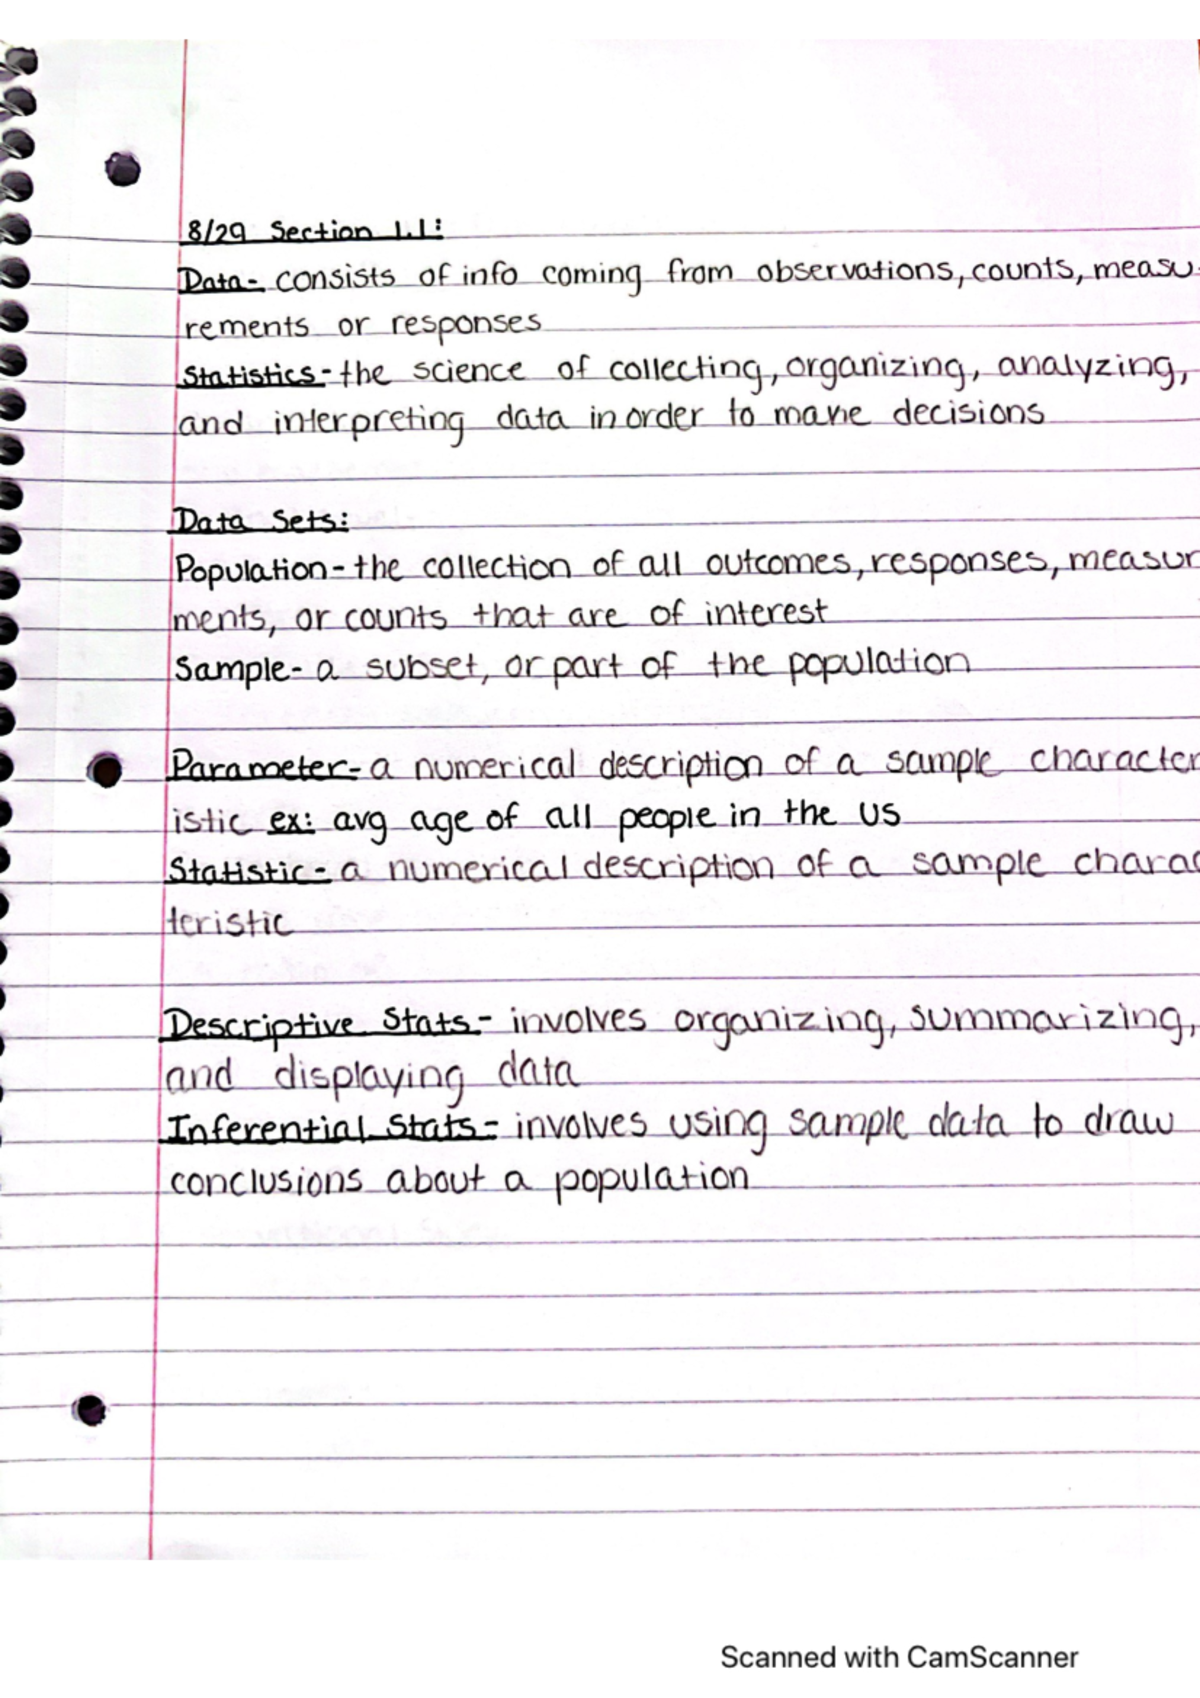 8/29 Section 1.1:
Data- consists of info coming from observations, counts, measu-
rements or responses
Statistics- the science of collecting, organizing, analyzing,
and interpreting data in order to make decisions
Data Sets:
Population- the collection of all outcomes, responses, measur
ments, or counts that are of interest
Sample- a subset, or part of the population
Parameter- a numerical description of a sample character
istic ex: avg age of all people in the US
Statistic- a numerical description of a sample charac
teristic
Descriptive Stats- involves organizing, summarizing,
and displaying data
Inferential Stats- involves using sample data to draw
conclusions about a population
Scanned with CamScanner